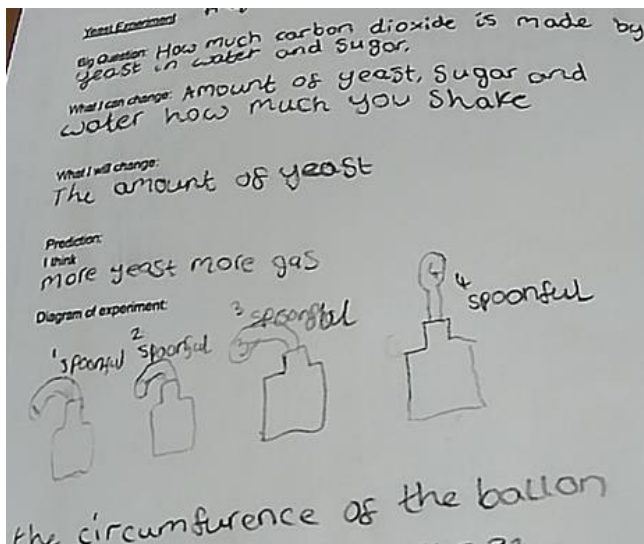 Yeast Experiment
Big Question: How much carbon dioxide is made by
yeast in water and sugar.
What I can change: Amount of yeast, sugar and
water how much you shake
What I will change:
The amount of yeast
Prediction:
I think
more yeast more gas
Diagram of experiment:
1 spoonful
2 spoonful
3 spoonful
4 spoonful
3
4
the circumfurence of the ballon